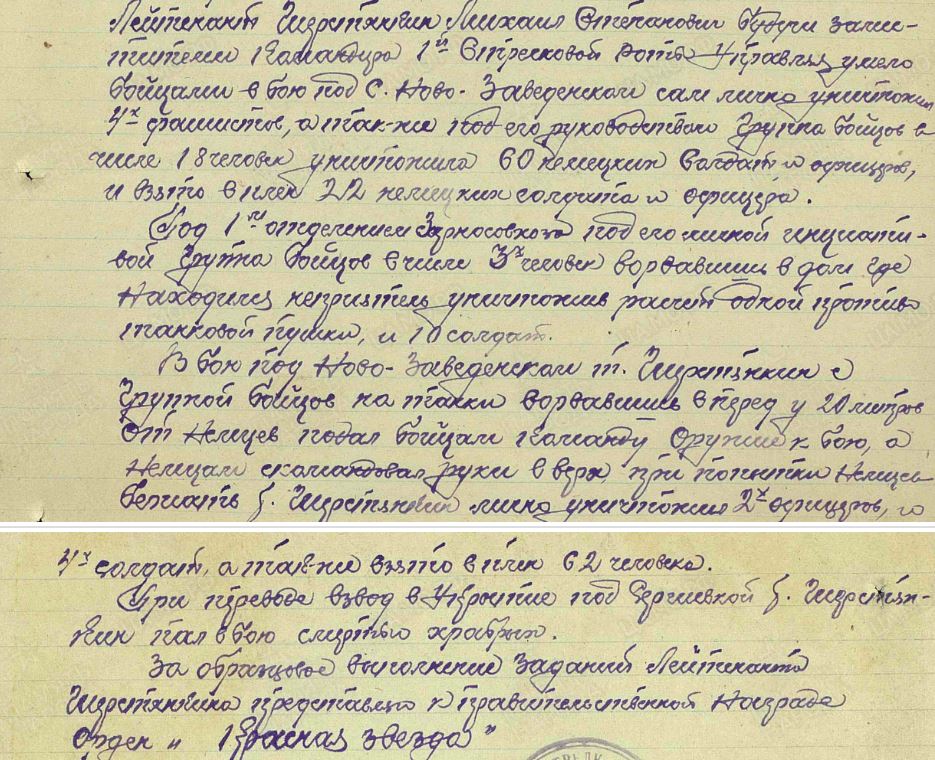 Лейтенант Шерстянкин Михаил Степанович будучи заме-
стителем Командира 1й Стрелковой роты Управляя умело
бойцами в бою под С. Ново-Заведенском сам лично уничтожил
4х фашистов, а так-же под его руководством группа бойцов в
числе 18 человек уничтожила 60 немецких солдат и офицеров,
и взято в плен 212 немецких солдата и офицера.
Под 1м отделением Зерносовхоза под его личной инициати-
вой группа бойцов в числе 3х человек ворвавшись в дом где
Находился неприятель уничтожив расчет одной противо
танковой пушки, и 10 солдат.
В бою под Ново-Заведенском т. Шерстянкин с
Группой бойцов на танке ворвавшись в перед у 20 метров
От Немцев подал бойцам команду Оружие к бою, а
Немцам скомандовал руки в верх, при попытки Немцев
бежать т. Шерстянкин лично уничтожил 2х офицеров, и
4х солдат, а так-же взято в плен 62 человека.
При переводе взвод в Украине под Сергиевкой т. Шерстян-
кин пал в бою смертью храбрых.
За образцовое выполнение заданий Лейтенанта
Шерстянкина представляю к правительственной Награде
Орден „Красная звезда"